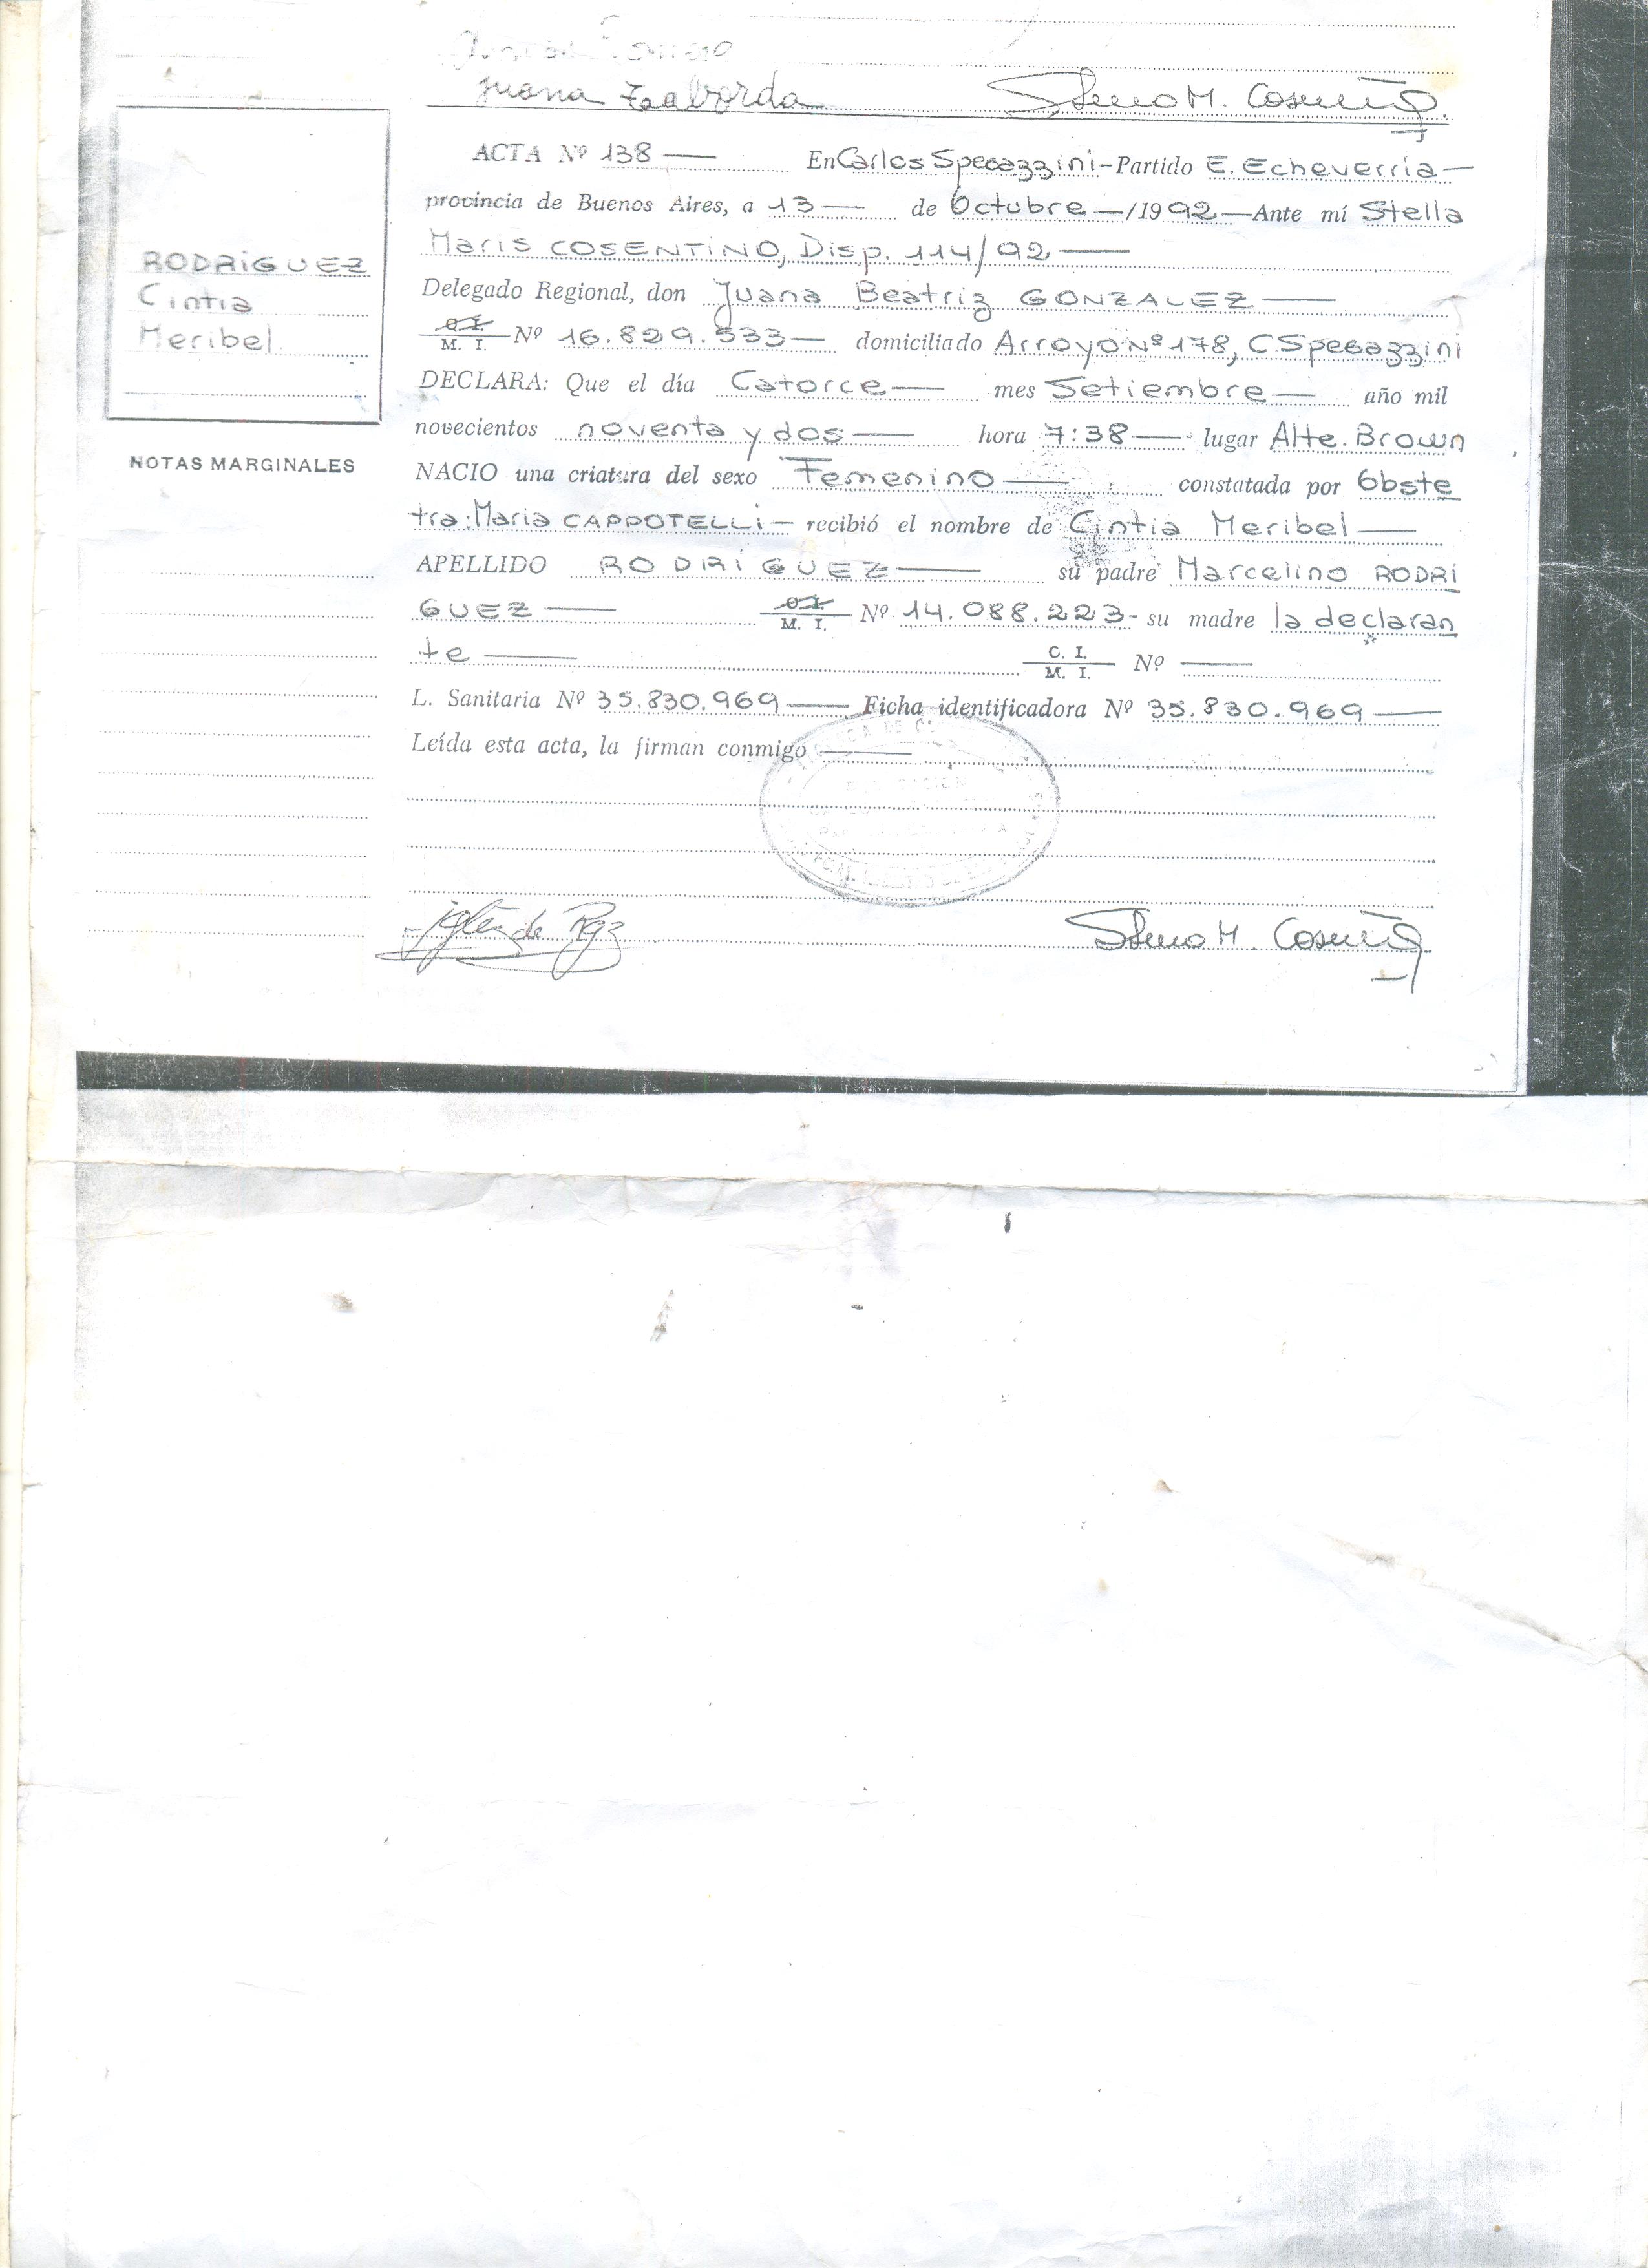 Juana Taborda
ACTA Nº 138 — En Carlos Spegazzini - Partido E. Echeverría —
provincia de Buenos Aires, a 13 — de Octubre — /1992 — Ante mí Stella
Maris COSENTINO, Disp. 114/92 —
Delegado Regional, don Juana Beatriz GONZALEZ —
C. I.
M. I. Nº 16.829.533 — domiciliado Arroyo Nº 178, C Spegazzini
DECLARA: Que el día Catorce — mes Setiembre — año mil
novecientos noventa y dos — hora 7:38 — lugar Alte. Brown
NACIO una criatura del sexo Femenino — constatada por Obste
tra: Maria CAPPOTELLI — recibió el nombre de Cintia Meribel —
APELLIDO RODRIGUEZ — su padre Marcelino RODRI
GUEZ — C. I.
M. I. Nº 14.088.223 - su madre la declaran
te — C. I.
M. I. Nº —
L. Sanitaria Nº 35.830.969 — Ficha identificadora Nº 35.830.969 —
Leída esta acta, la firman conmigo —
RODRIGUEZ
Cintia
Meribel
NOTAS MARGINALES